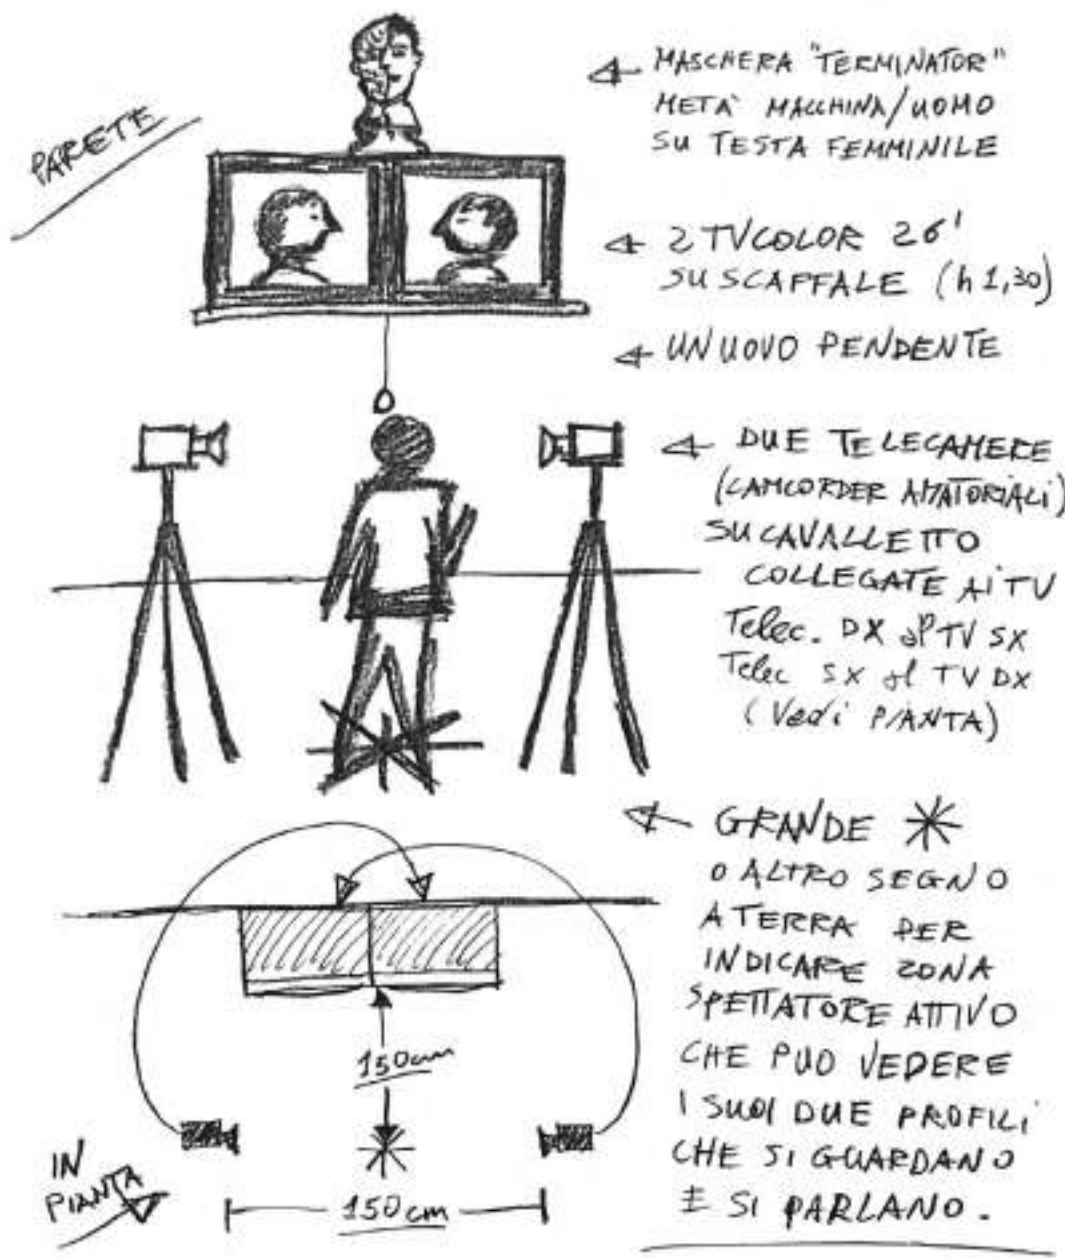 PARETE
MASCHERA "TERMINATOR"
METÀ MACCHINA/UOMO
SU TESTA FEMMINILE
2 TVCOLOR 26'
SU SCAFFALE (h 1,30)
UN UOVO PENDENTE
DUE TELECAMERE
(CAMCORDER AMATORIALI)
SU CAVALLETTO
COLLEGATE AI TV
Telec. DX al TV SX
Telec SX al TV DX
(Vedi PIANTA)
GRANDE *
O ALTRO SEGNO
A TERRA PER
INDICARE ZONA
SPETTATORE ATTIVO
CHE PUO VEDERE
I SUOI DUE PROFILI
CHE SI GUARDANO
E SI PARLANO.
150cm
IN
PIANTA
150cm